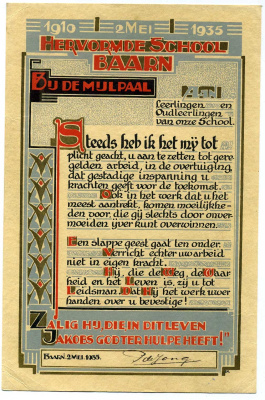 1910 2 MEI 1935
HERVORMDE SCHOOL
BAARN
BIJ DE MIJLPAAL
AAN
leerlingen en
Oudleerlingen
van onze School.
Steeds heb ik het mij tot
plicht geacht, u aan te zetten tot gere-
gelden arbeid, in de overtuiging,
dat gestadige inspanning u
krachten geeft voor de toekomst.
Ook in het werk dat u het
meest aantrekt, komen moeilijkhe-
den voor, die gij slechts door onver-
moeiden ijver kunt overwinnen.
Een slappe geest gaat ten onder.
Verricht echter uw arbeid
niet in eigen kracht.
Hij, die de Weg, de Waar
heid en het Leven is, zij u tot
Leidsman. Dat Hij het werk uwer
handen over u bevestige!
ZALIG HIJ, DIE IN DIT LEVEN
JAKOBS GOD TER HULPE HEEFT!"
BAARN, 2 MEI 1935.
J de Jong